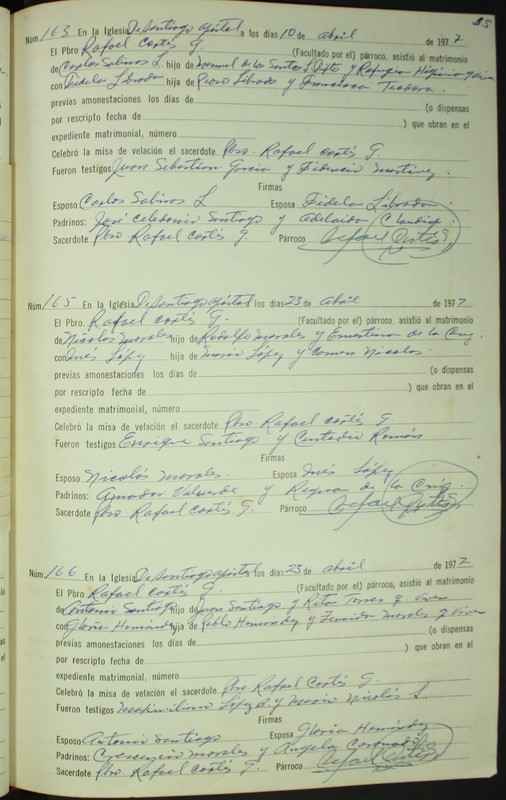 35
Núm. 163 En la Iglesia De Santiago apóstol a los días 10 de abril de 1977
El Pbro. Rafael Cortés G. (Facultado por el) párroco, asistió al matrimonio
de Carlos Salinas L. hijo de Manuel de los Santos y Refugia
con Fidela Librada hija de Pedro Librado y Teodora.
previas amonestaciones los días de (o dispensas
por rescripto fecha de ) que obran en el
expediente matrimonial, número
Celebró la misa de velación el sacerdote Pbro. Rafael Cortés G.
Fueron testigos Juan Sebastian Garcia y Fidencio Martinez
Firmas
Esposo Carlos Salinas L Esposa Fidela Librada
Padrinos: José Celedonio Santiago y Adelaida
Sacerdote Pbro Rafael Cortés G. Párroco Rafael Cortés G
Núm. 165 En la Iglesia De Santiago apóstol los días 23 de abril de 1977
El Pbro. Rafael Cortés G. (Facultado por el) párroco, asistió al matrimonio
de Nicolás Morales hijo de Rodolfo Morales y Ernestina de la Cruz.
con Inés López hija de Mario López y Carmen Nicolas.
previas amonestaciones los días de (o dispensas
por rescripto fecha de ) que obran en el
expediente matrimonial, número
Celebró la misa de velación el sacerdote Pbro Rafael Cortés G.
Fueron testigos Enrique Santiago y Custodio Román
Firmas
Esposo Nicolás Morales. Esposa Inés López
Padrinos: Amador Valverde y Reyna de la Cruz.
Sacerdote Pbro Rafael Cortés G. Párroco Rafael Cortés G
Núm. 166 En la Iglesia De Santiago apóstol los días 23 de abril de 1977
El Pbro. Rafael Cortés G. (Facultado por el) párroco, asistió al matrimonio
de Antonio Santiago hijo de Juan Santiago y Rita Torres q. viven
con Gloria Hernández hija de Pablo Hernandez y Morales q. viven
previas amonestaciones los días de (o dispensas
por rescripto fecha de ) que obran en el
expediente matrimonial, número
Celebró la misa de velación el sacerdote Pbro Rafael Cortés G.
Fueron testigos Maximiliano López B. y Mario Nicolás L.
Firmas
Esposo Antonio Santiago Esposa Gloria Hernández
Padrinos: Crescencio Morales y Angela Coronado
Sacerdote Pbro Rafael Cortés G. Párroco Rafael Cortés G